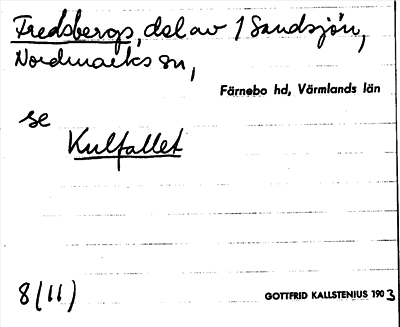 Fredsbergs, del av 1 Sandsjön,
Nordmarks sn,
Färnebo hd, Värmlands län
se
Kulfallet
8 (11)
GOTTFRID KALLSTENIUS 1903